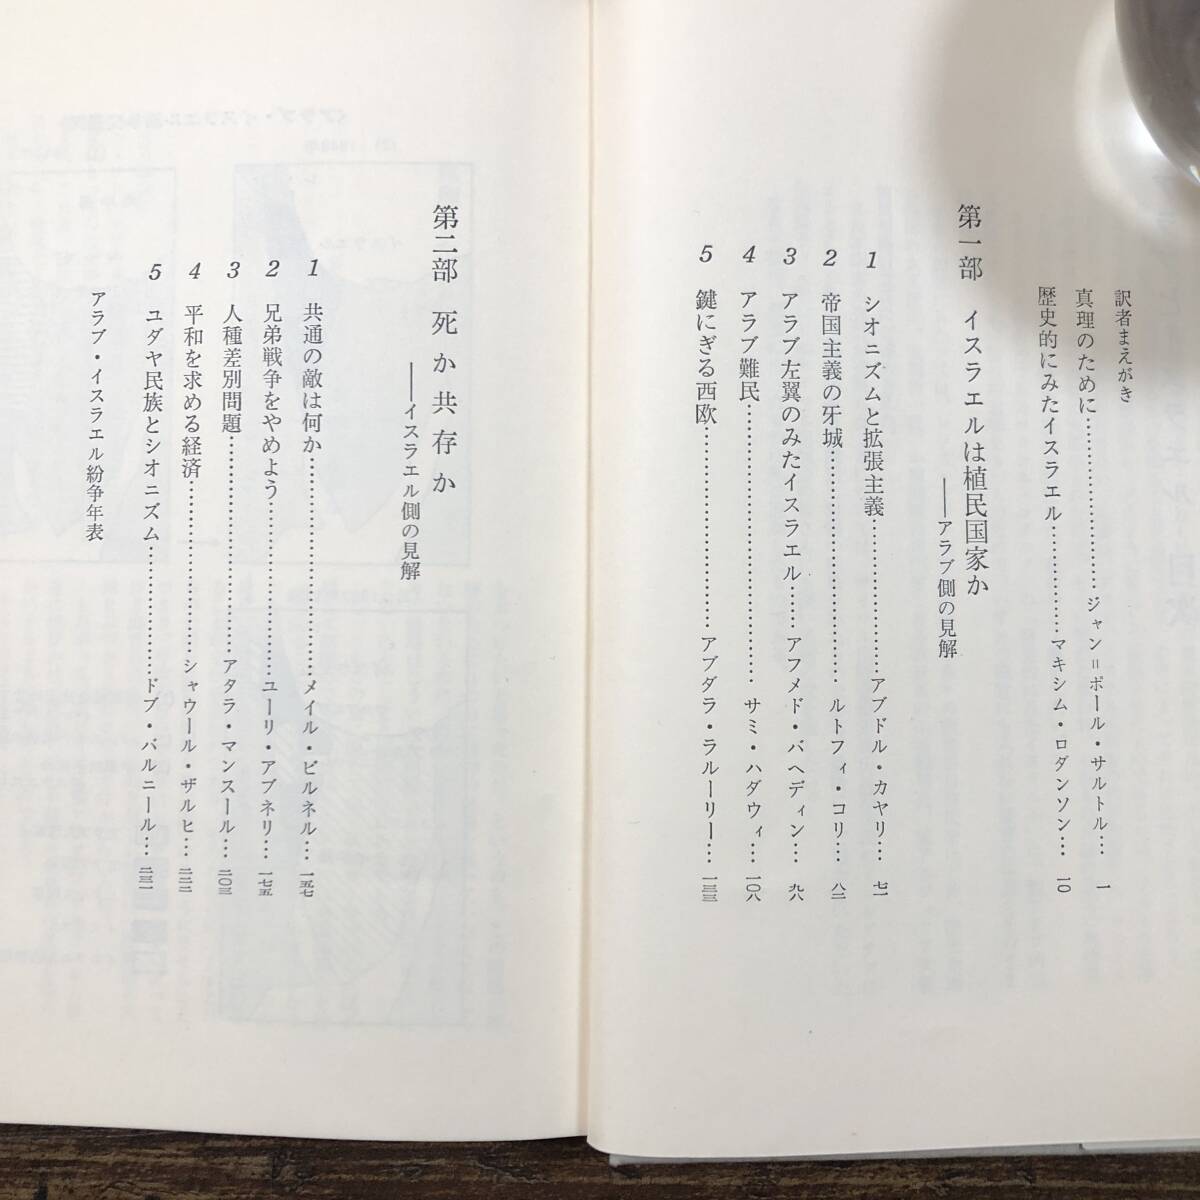 訳者まえがき
真理のために……………………ジャン＝ポール・サルトル… 一
歴史的にみたイスラエル……………マキシム・ロダンソン… 一〇
第一部 イスラエルは植民国家か
――アラブ側の見解
1 シオニズムと拡張主義…………………アブドル・カヤリ… 七一
2 帝国主義の牙城…………………………ルトフィ・コリ… 八二
3 アラブ左翼のみたイスラエル……アフメド・バヘディン… 九八
4 アラブ難民………………………………サミ・ハダウィ… 一〇八
5 鍵にぎる西欧……………………アブダラ・ラルーリー… 一三三
第二部 死か共存か
――イスラエル側の見解
1 共通の敵は何か……………………メイル・ビルネル… 一五七
2 兄弟戦争をやめよう………………ユーリ・アブネリ… 一七五
3 人種差別問題………………………アタラ・マンスール… 二〇三
4 平和を求める経済…………………シャウール・ザルヒ… 二二二
5 ユダヤ民族とシオニズム……………ドブ・バルニール… 二三一
アラブ・イスラエル紛争年表